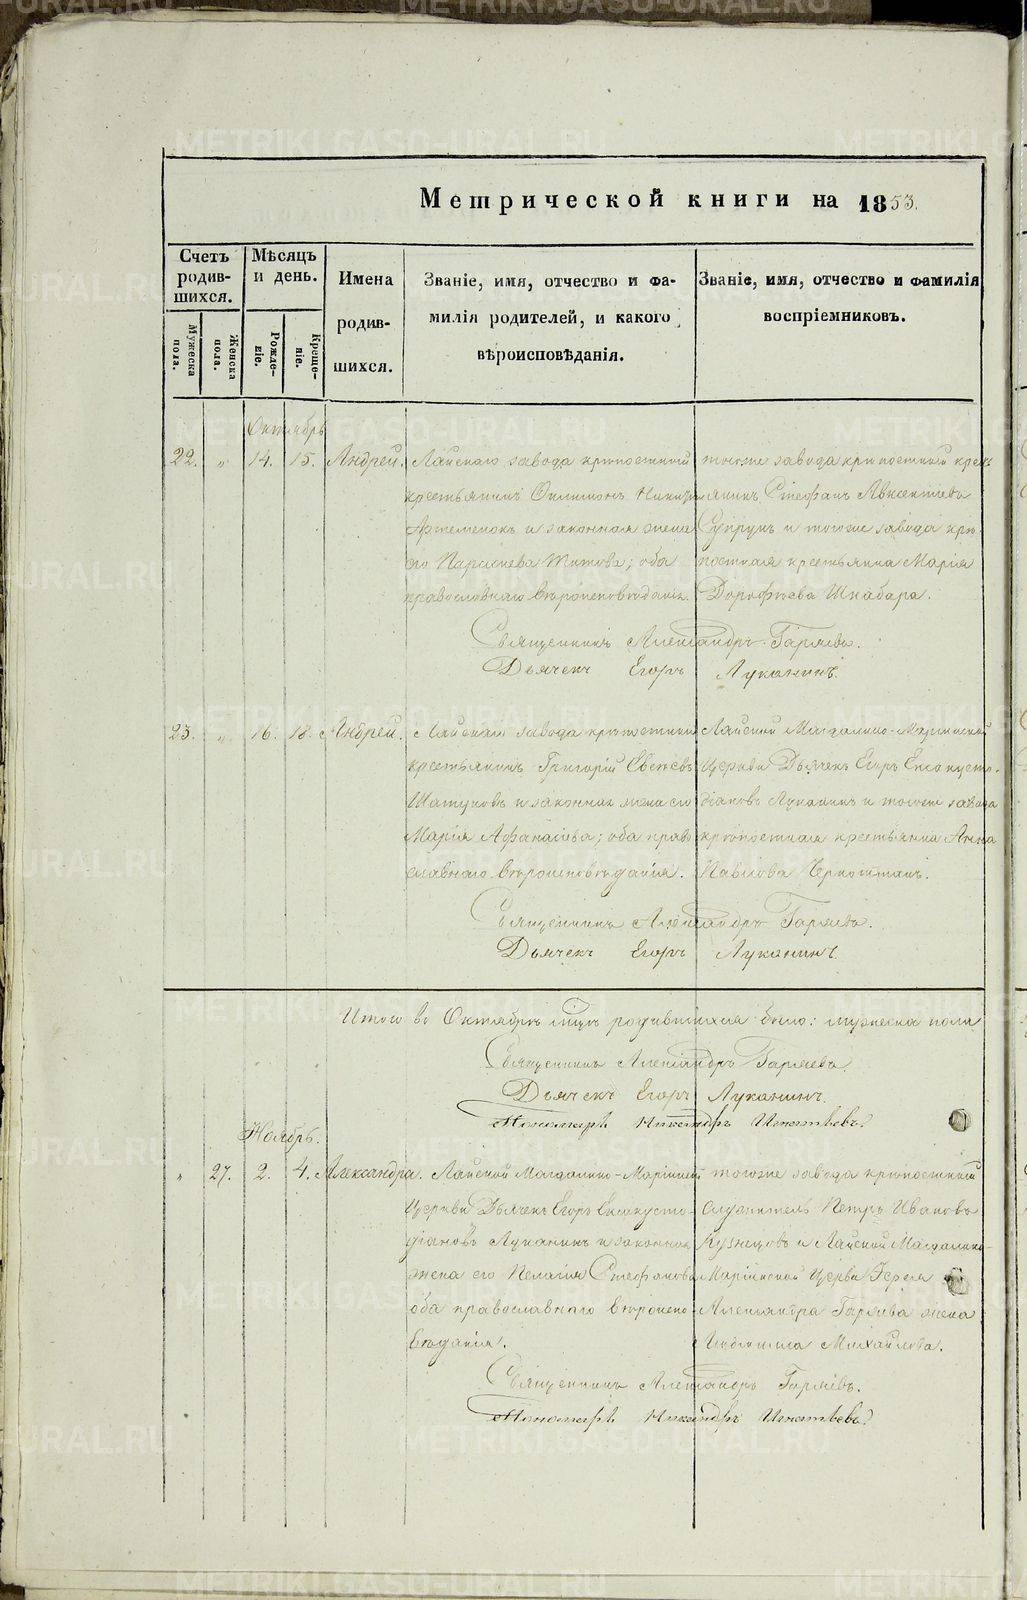 Метрической книги на 1853.
Счетъ родившихся.
Мѣсяцъ и день.
Имена родившихся.
Званіе, имя, отчество и фамилія родителей, и какого вѣроисповѣданія.
Званіе, имя, отчество и фамилія воспріемниковъ.
Мужеска пола.
Женска пола.
Рожденіе.
Крещеніе.
Октябрь
22. „ 14. 15. Андрей. Лайскаго завода крѣпостный тогоже завода крѣпостный крест
крестьянинъ Филимонъ
янинъ Стефанъ Авксентіевъ
Артеменокъ и законная жена
Супрунъ и тогоже завода крѣ
его Параскева Титова; оба
постная крестьянка Марія
православнаго вѣроисповѣданія.
Дорофѣева Шкабара.
Священникъ Александръ Гаряевъ.
Дьячекъ Егоръ Луканинъ.
23. „ 16. 18. Андрей. Лайскаго завода крѣпостный Лайской Магдалино-Маріинской
крестьянинъ Григорій
Церкви Дьячекъ Егоръ Енсакусто-
законная жена его
діановъ Луканинъ и тогоже завода
Марія Афанасіева; оба право
крѣпостная крестьянка Анна
славнаго вѣроисповѣданія.
Павлова
Священникъ Александръ Гаряевъ.
Дьячекъ Егоръ Луканинъ.
Итого въ Октябрѣ мцѣ родившихся было: мужеска пола
Священникъ Александръ Гаряевъ.
Дьячекъ Егоръ Луканинъ.
Пономарь Никандръ Игнатьевъ.
Ноябрь.
„ 27. 2. 4. Александра. Лайской Магдалино-Маріинской тогоже завода крѣпостный
Церкви Дьячекъ Егоръ
служитель Петръ Ивановъ
діановъ Луканинъ и законная
Кузнецовъ и Лайской Магдалино-
жена его Пелагія Стефанова
Маріинской Церкви Іерея
оба православнаго вѣроиспо-
Александра Гаряева жена
вѣданія.
Михайлова.
Священникъ Александръ Гаряевъ.
Пономарь Никандръ Игнатьевъ.
METRIKI.GASO-URAL.RU